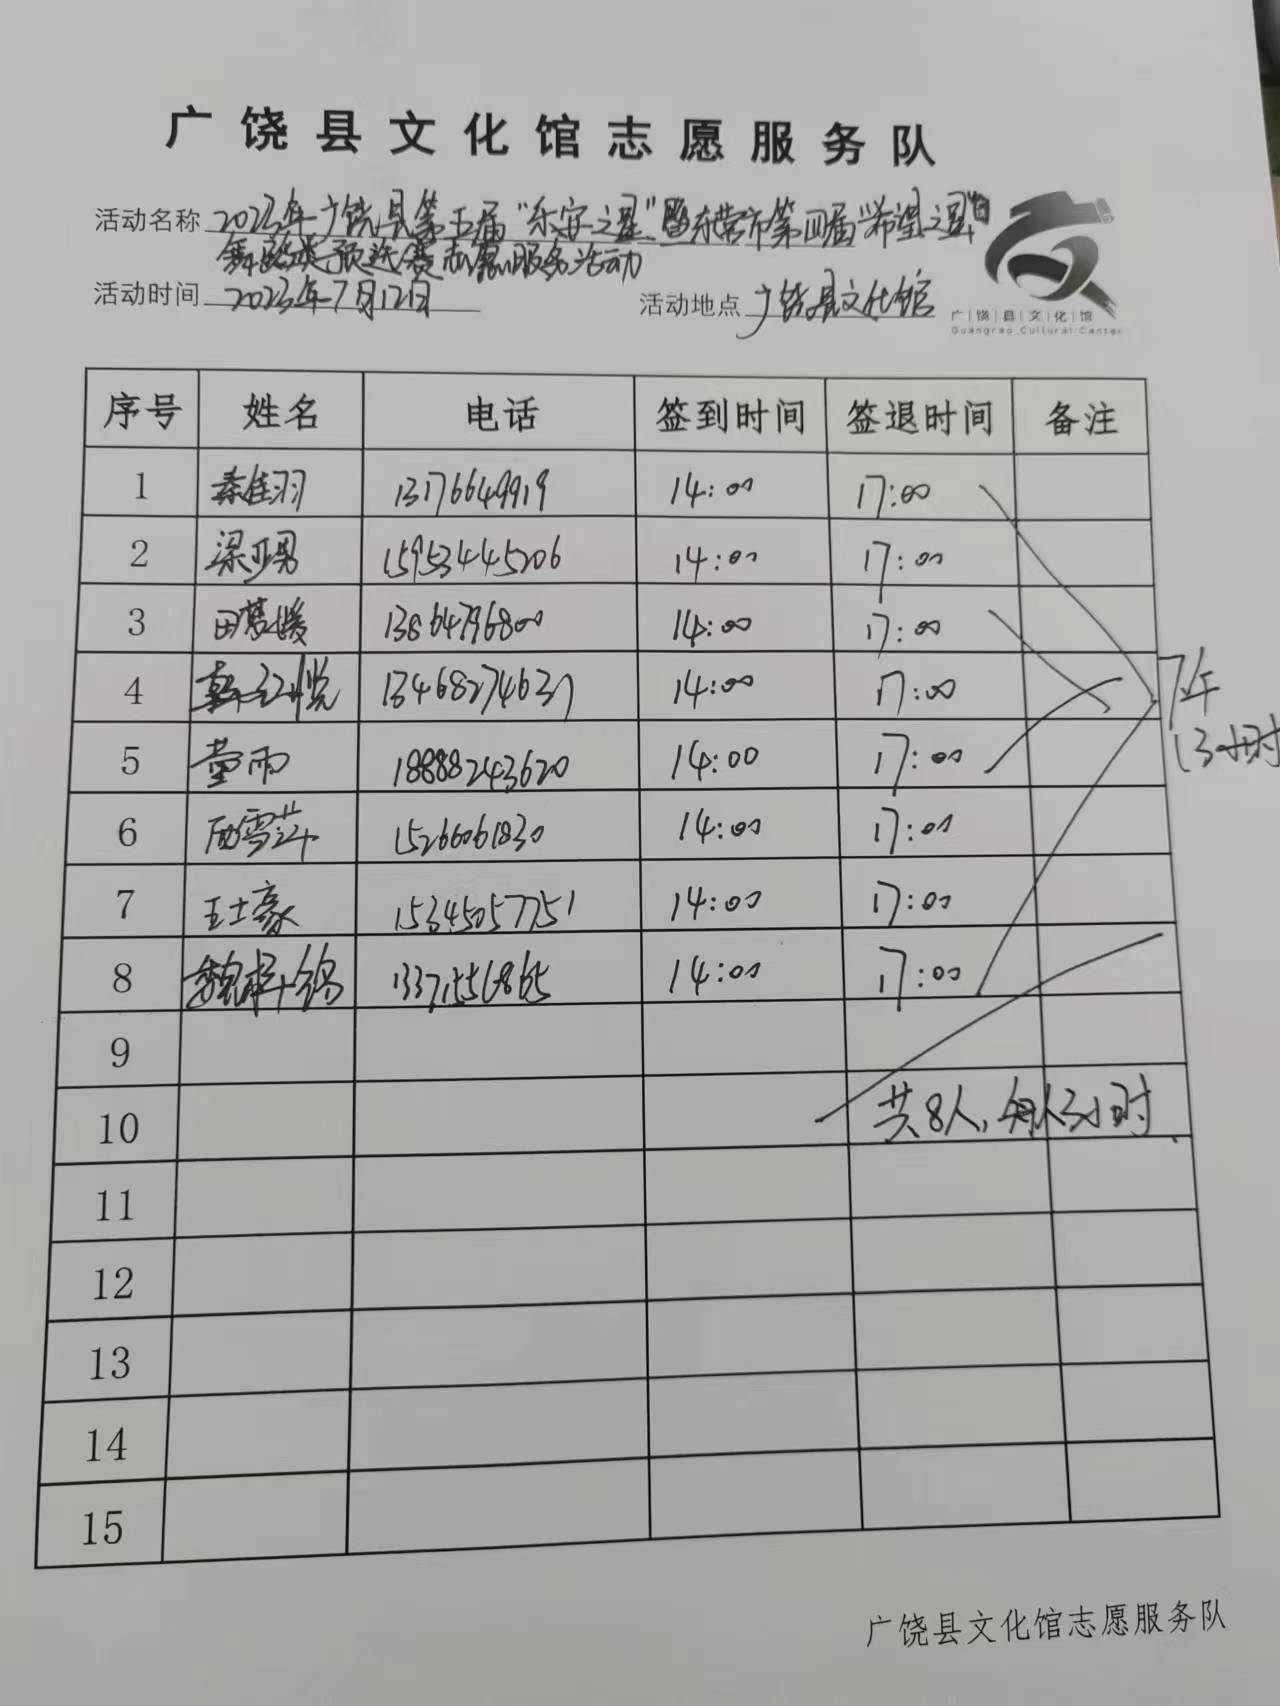 广饶县文化馆志愿服务队
活动名称 2023年广饶县第五届“乐安之星”暨东营市第四届“希望之星”
舞蹈类预选赛志愿服务活动
活动时间 2023年7月12日 活动地点 广饶县文化馆
广|饶|县|文|化|馆
Guangrao Cultural Center
序号 姓名 电话 签到时间 签退时间 备注
1 秦佳羽 13176649919 14:00 17:00
2 梁亚男 15953445206 14:00 17:00
3 田 媛 13864796800 14:00 17:00
4 悦 13468274637 14:00 17:00
5 董雨 18888243620 14:00 17:00
6 雪萍 15266061830 14:00 17:00
7 王士豪 15345057751 14:00 17:00
8 魏梓锦 14:00 17:00
下午
(3小时
9
10 共8人,每人3小时
11
12
13
14
15
广饶县文化馆志愿服务队